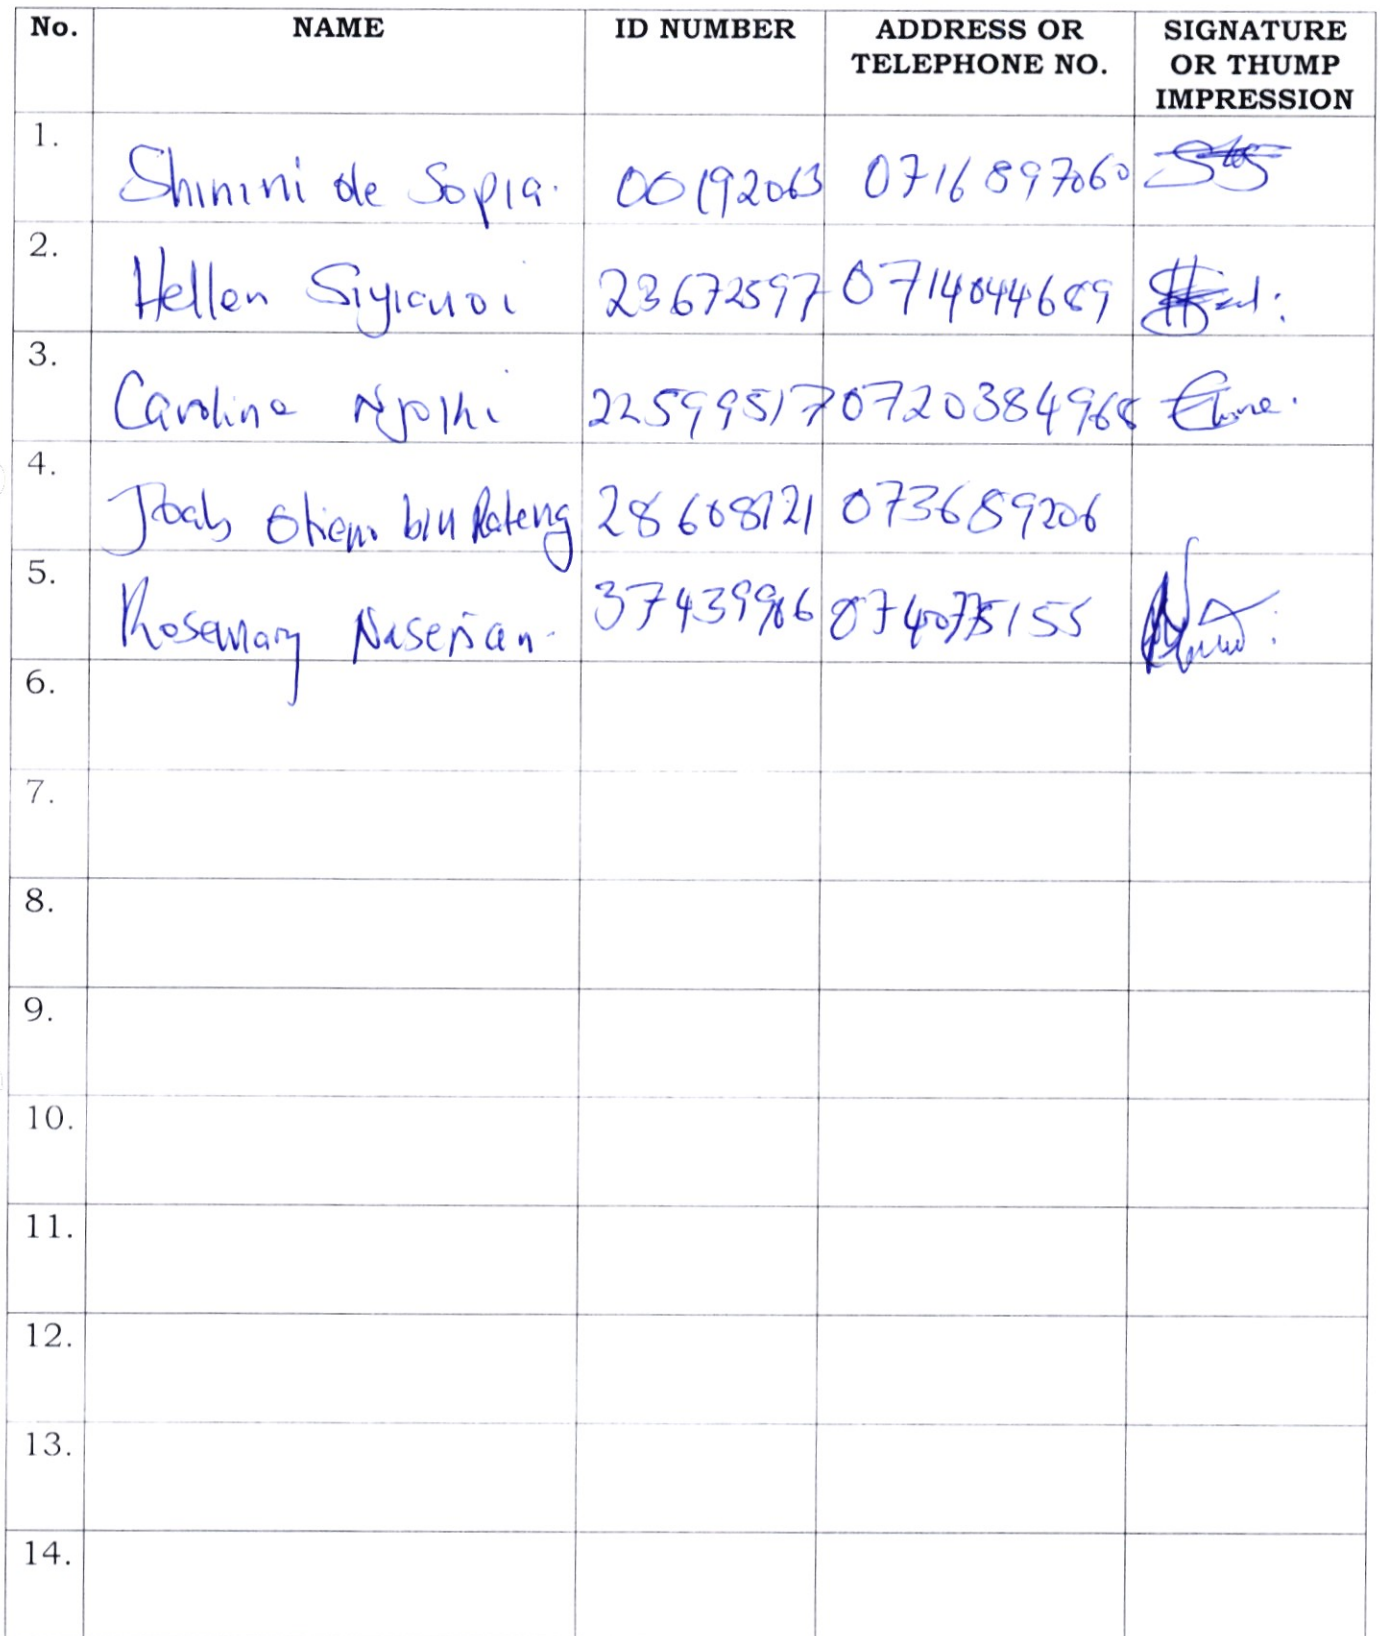 No. NAME ID NUMBER ADDRESS OR TELEPHONE NO. SIGNATURE OR THUMP IMPRESSION
1. Shinini de Sopia. 00192063 0716897060
2. Hellen Siyianoi 23672597 0714044689
3. Caroline Njothi 22599517 0720384968
4. Joab Otieno bin Rateng 28608121 073689206
5. Rosemary Naserian. 37439986
6.
7.
8.
9.
10.
11.
12.
13.
14.